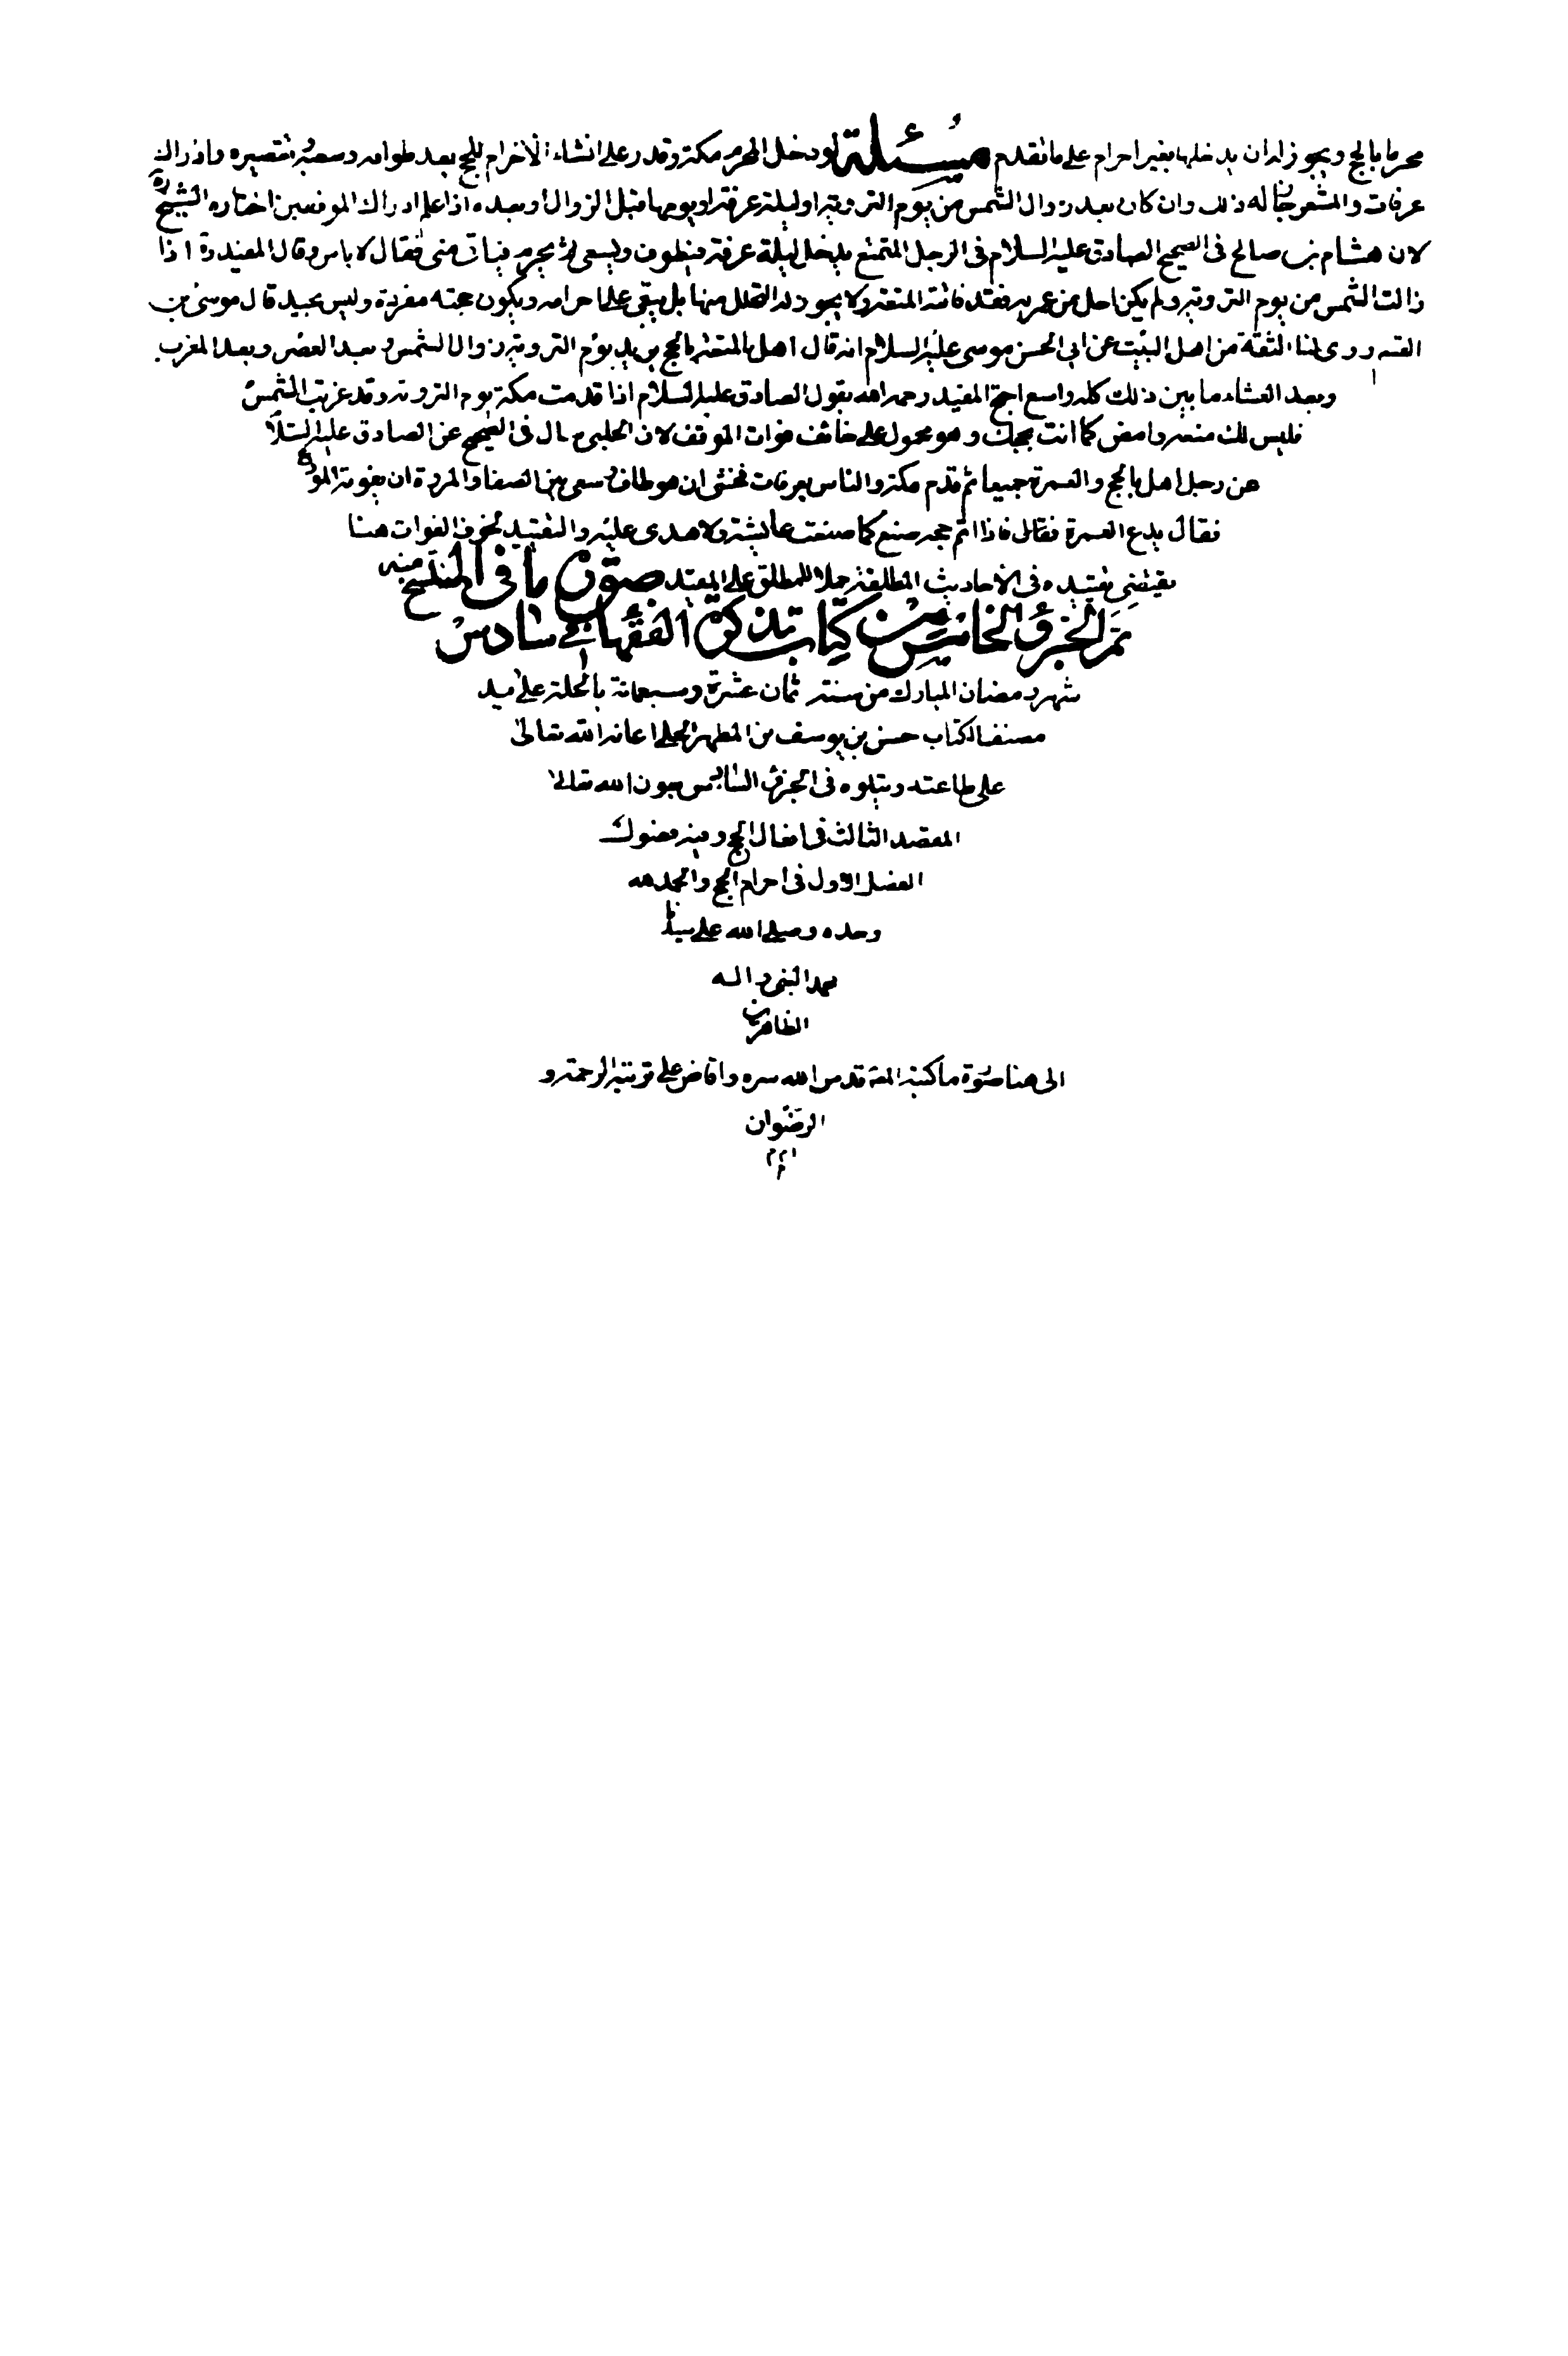 محرما بالحج ويجوز له ان يدخلها بغير احرام على ما تقدم مسئلة لو دخل المحرم مكة وقدر على انشاء الاحرام للحج بعد طوافه وسعيه وتقصيره وادراك
عرفات والمشعر جاز له ذلك وان كان بعد زوال الشمس من يوم التروية او ليلة عرفة او يومها قبل الزوال او بعده اذا علم ادراك الموقفين اختاره الشيخ ره
لان هشام بن سالم في الصحيح الصادق عليه السلام في الرجل المتمتع يدخل ليلة عرفة فيطوف ويسعى ثم يحرم فياتي منى فقال لا باس وقال المفيد ره اذا
زالت الشمس من يوم التروية ولم يكن احل من عمرته فقد فاتته المتعة ولا يجوز له التحلل منها بل يبقى على احرامه ويكون حجته مفردة وليس بجيد قال موسى بن
القسم روى لنا الثقة من اهل البيت عن ابي الحسن موسى عليه السلام انه قال اهل بالمتعة بالحج يريد يوم التروية زوال الشمس وبعد العصر وبعد المغرب
وبعد العشاء ما بين ذلك كله واسع احتج المفيد رحمه الله بقول الصادق عليه السلام اذا قدمت مكة يوم التروية وقد غربت الشمس
فليس لك متعة وامض كما انت بحجك وهو محمول على خائف فوات الموقف لان الحلبي سال في الصحيح عن الصادق عليه السلام
عن رجل اهل بالحج والعمرة جميعا ثم قدم مكة والناس بعرفات فخشى ان هو طاف وسعى بين الصفا والمروة ان يفوته الموقف
فقال يدع العمرة فقال فاذا اتم حجه صنع كما صنعت عايشة ولا هدى عليه والتقييد بخوف الفوات هنا
يقتضي تقييده في الاحاديث المطلقة حملا للمطلق على المقيد صورة ما في المنتسخ منه
تم الجزؤ الخامس من كتاب تذكرة الفقهاء في سادس
شهر رمضان المبارك من سنة ثمان عشرة وسبعمائة بالحلة على يد
مصنف الكتاب حسن بن يوسف بن المطهر الحلي اعانه الله تعالى
على طاعته ويتلوه في الجزؤ السادس بعون الله تعالى
المقصد الثالث في افعال الحج وفيه فصول
الفصل الاول في احرام الحج والحمد لله
وحده وصلى الله على سيدنا
محمد النبي واله
الطاهرين
الى هنا صورة ما كتبه المصة قدس الله سره وافاض على تربته الرحمة و
الرضوان